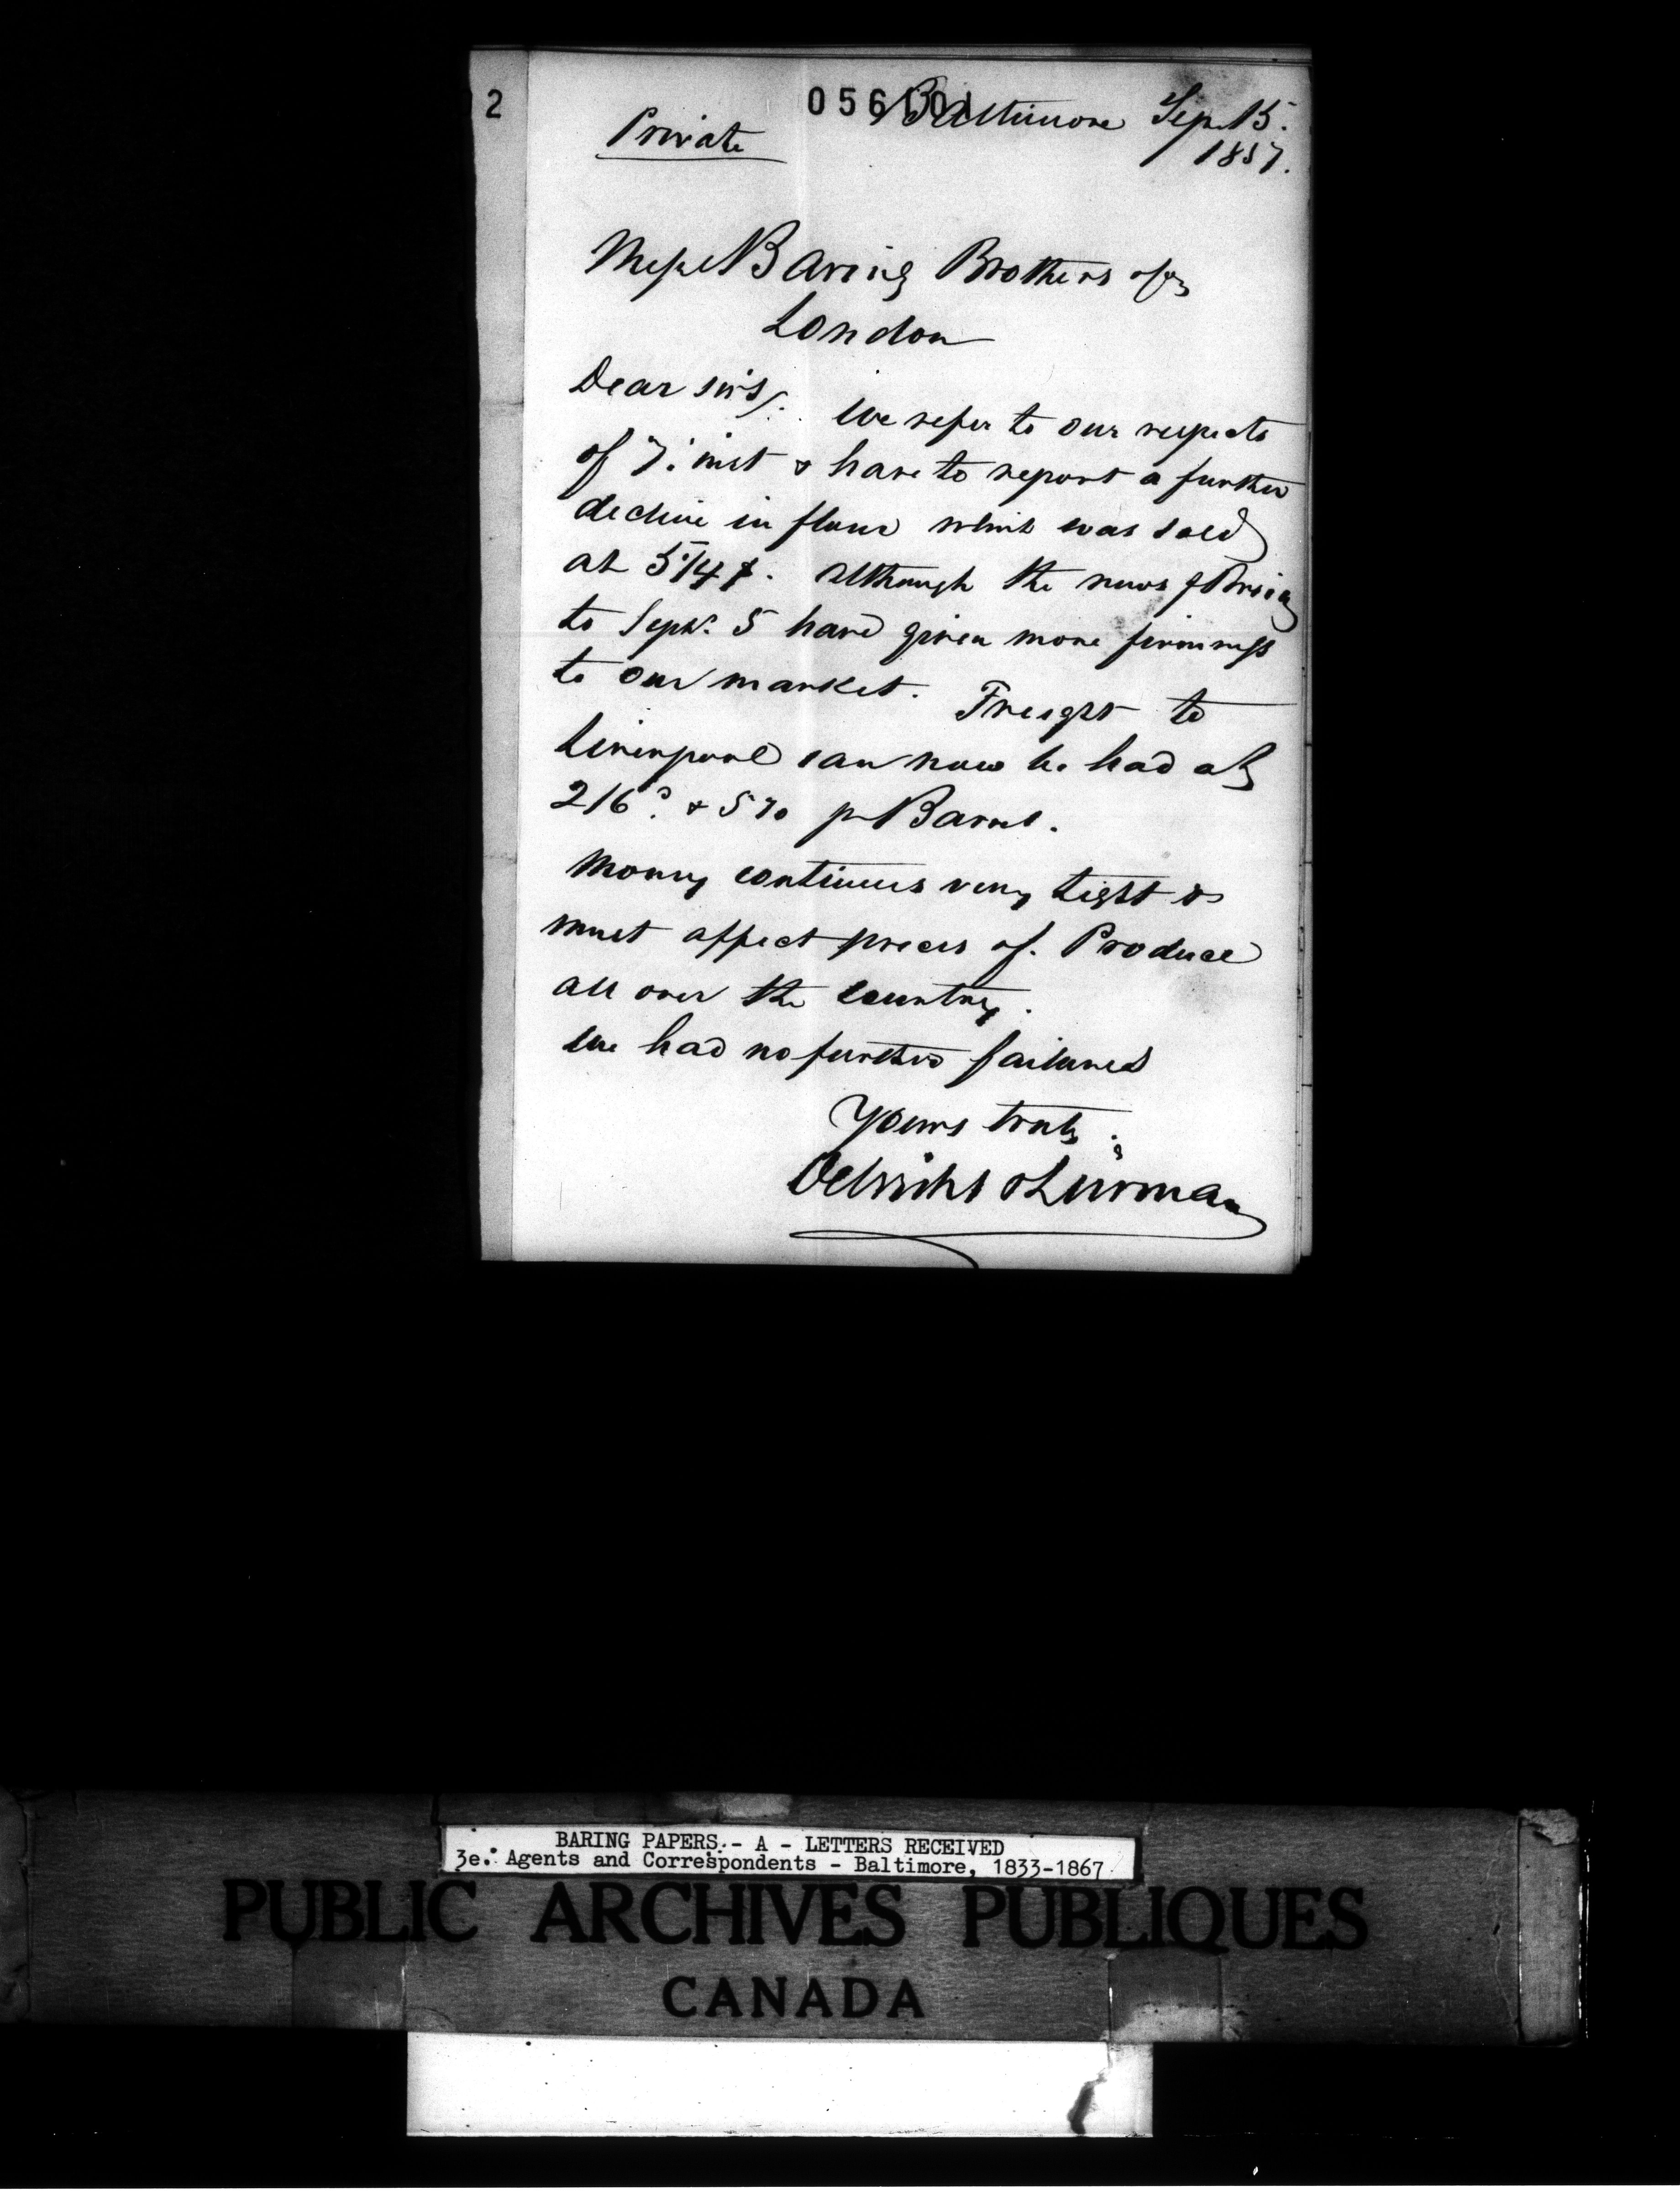 2
05610
Baltimore Sep. 15.
1857.
Private
Messrs Baring Brothers & Co
London
Dear sirs/. We refer to our respects
of 7. inst & have to report a further
decline in flour which was sold
at 5 1/4 $. although the news
to Sept. 5 have given more firmness
to our market. Freight to
Liverpool can now be had at
2/6d. & 5 % pr Barrel.
Money continues very tight &
must affect prices of. Produce
all over the country.
We had no further failures
Yours truly.
Oelrichs & Lürman
BARING PAPERS.- A - LETTERS RECEIVED
3e. Agents and Correspondents - Baltimore, 1833-1867
PUBLIC ARCHIVES PUBLIQUES
CANADA